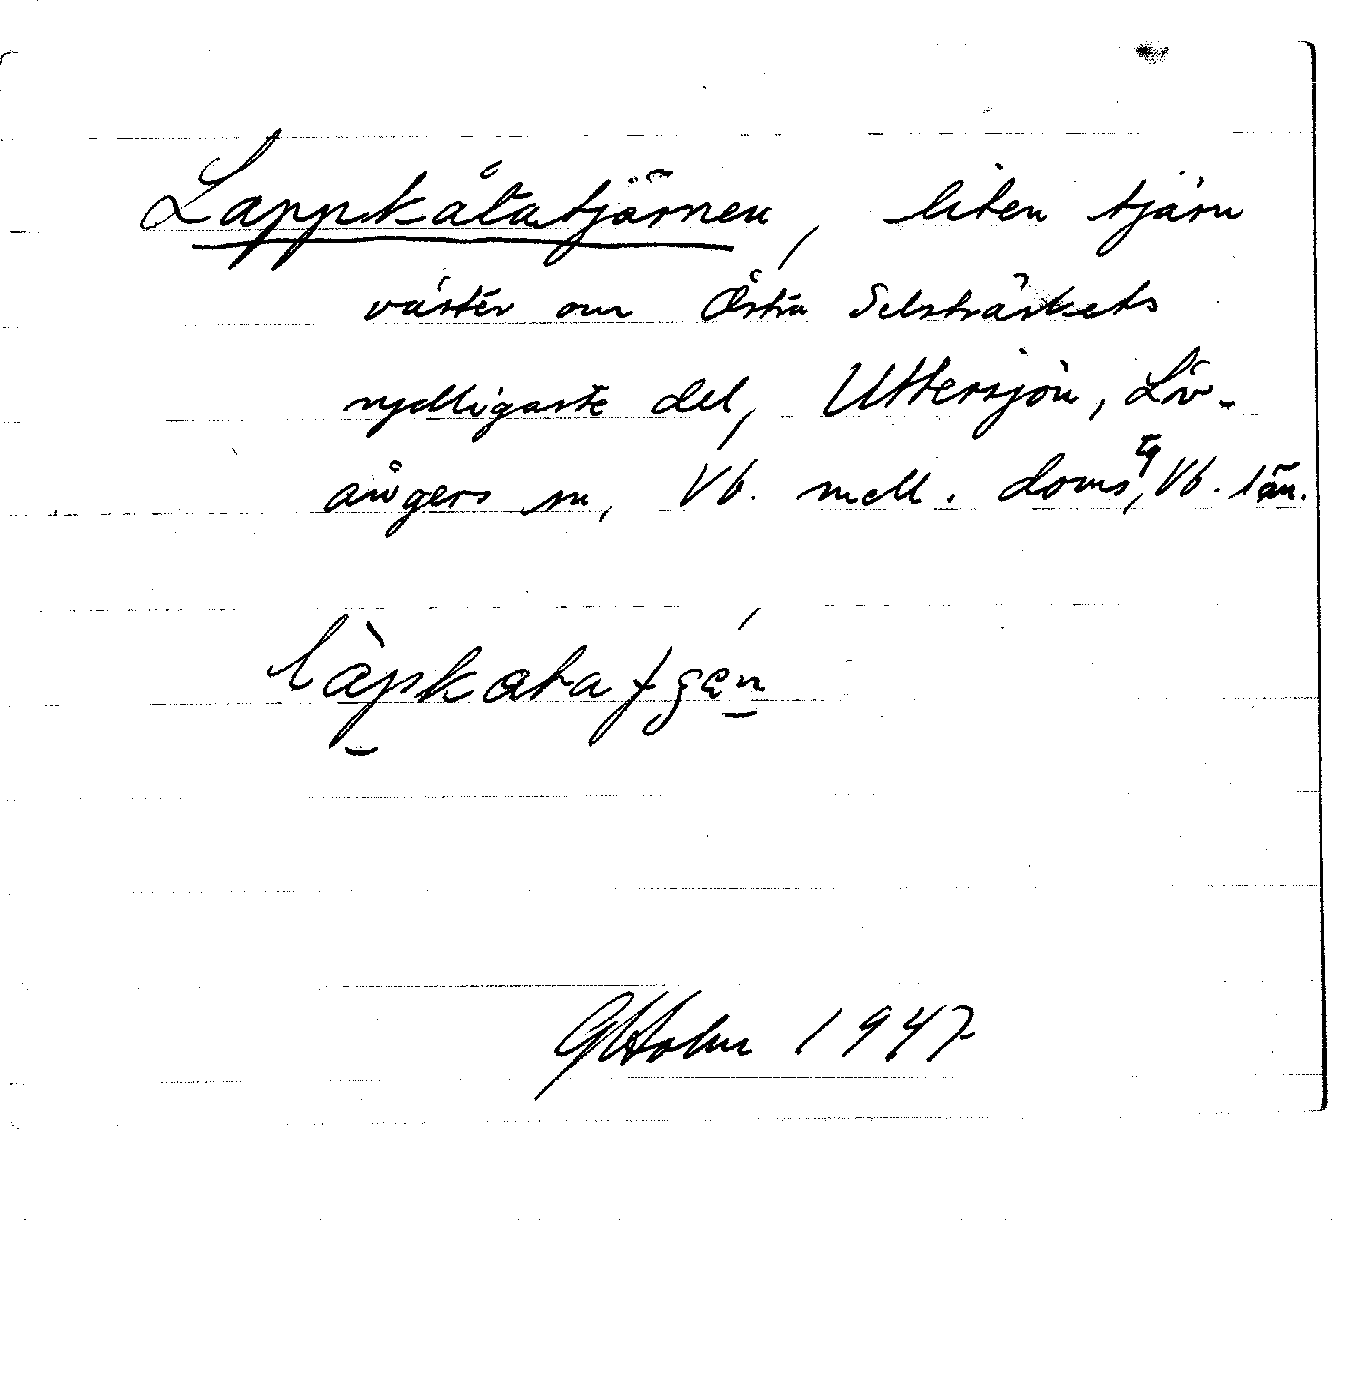 Lappkåtatjärnen, liten tjärn
väster om Östra Selsträskets
sydligaste del, Uttersjön, Löv-
ångers sn, Vb. mell. doms
tg, Vb. län.
GHolm 1947